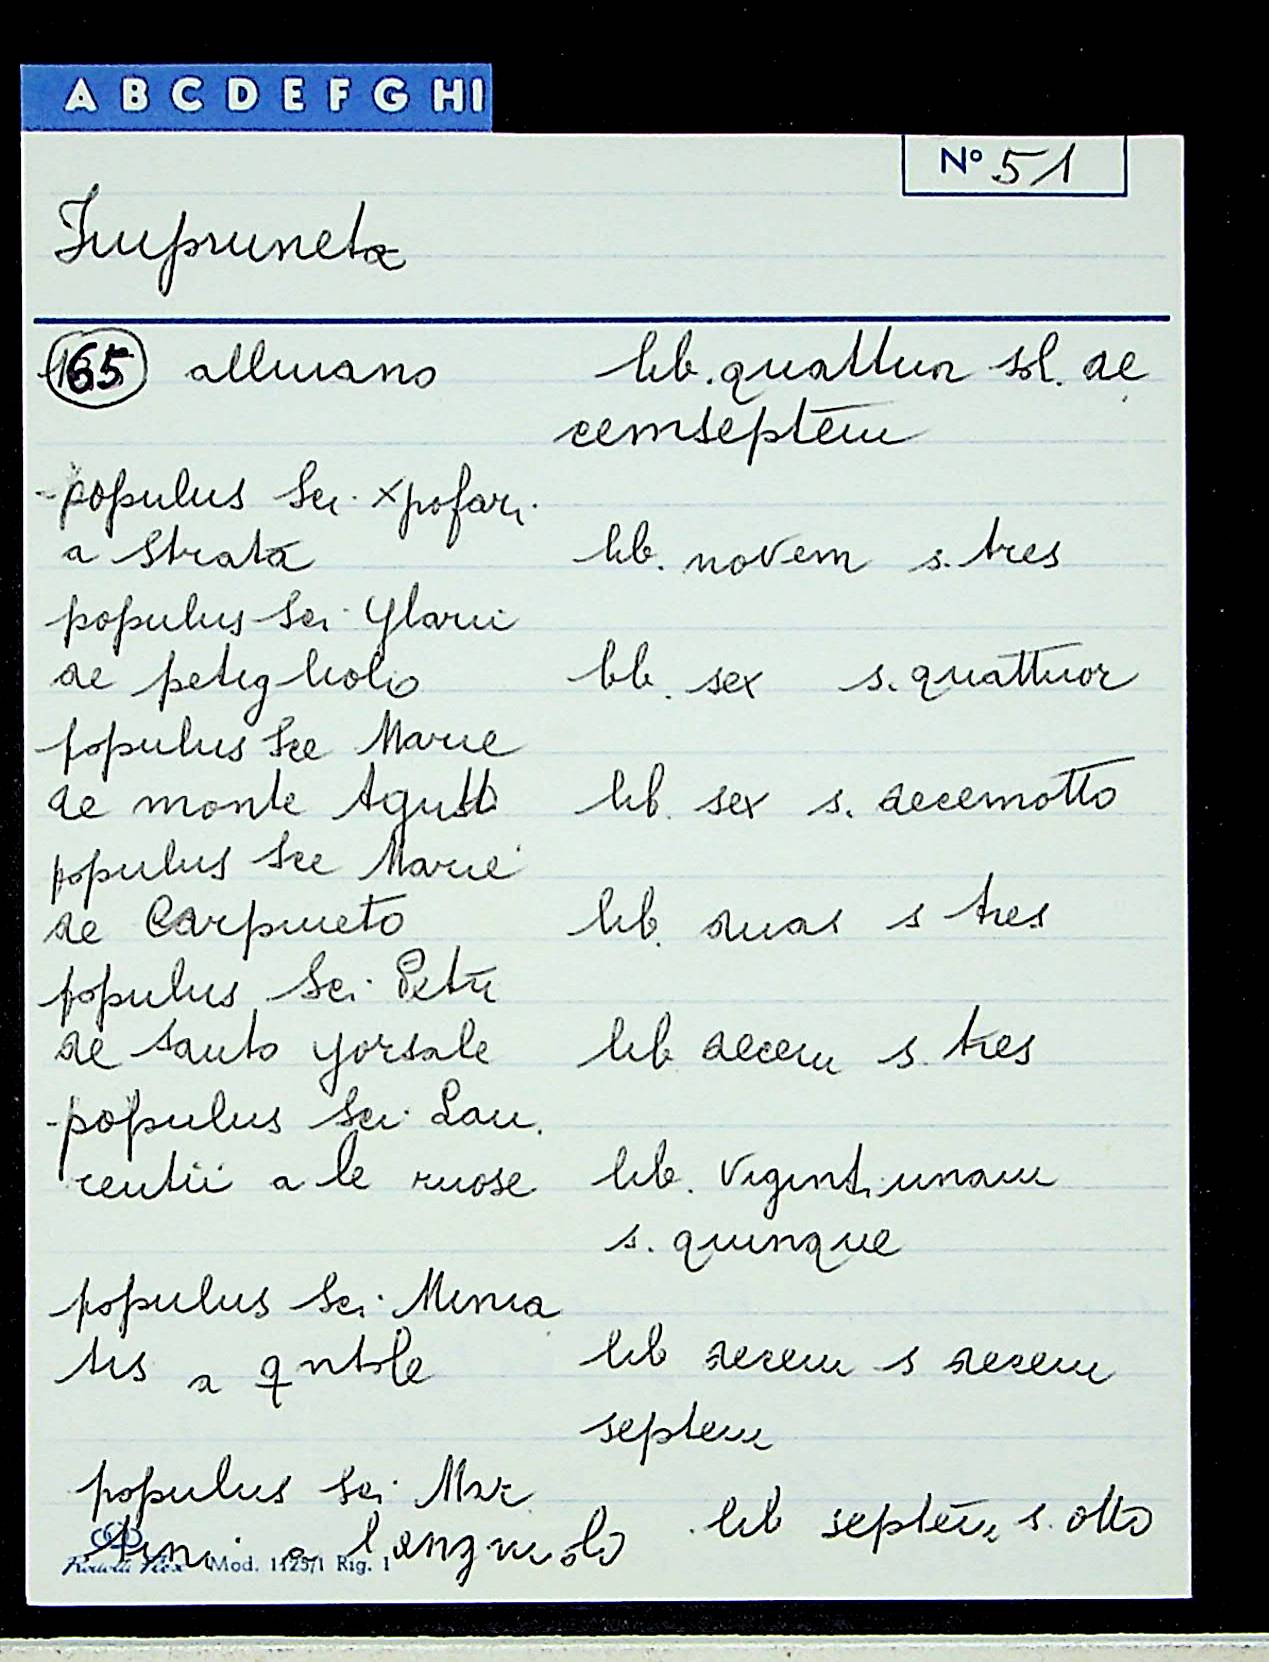 A B C D E F G H I
N° 51
Impruneta
165 alluiano lib. quattuor sol. de
cemseptem
- populus Sci. Xpofari.
a Strata lib. novem s. tres
populus Sci. Ylarii
de petigliolo lib. sex s. quattuor
populus Sce Marie
de monte Aguto lib. sex s. decemotto
populus Sce Marie
de Carpineto lib. duas s tres
populus Sci. Petri
de Santo Yorsale lib decem s. tres
- populus Sci. Lau.
rentii a le ruose lib. Viginti unam
s. quinque
populus Sci. Minia
tis a lib decem s decem
septem
populus Sci. Mar
tini a lib septem s. otto
Mod. 1125/1 Rig. 1